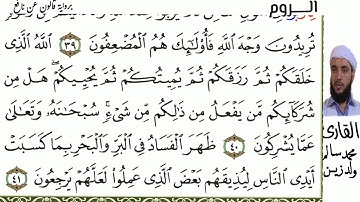 الروم
برواية قالون عن نافع
تُرِيدُونَ وَجْهَ اَللَّهِ فَأُوْلَٰٓئِكَ هُمُ اُلْمُضْعِفُونَ ٣٩ اَللَّهُ اُلَّذِے
خَلَقَكُمْ ثُمَّ رَزَقَكُمْ ثُمَّ يُمِيتُكُمْ ثُمَّ يُحْيِيكُمْ هَلْ مِن
شُرَكَآئِكُم مَّن يَفْعَلُ مِن ذَٰلِكُم مِّن شَےْءٍ سُبْحَٰنَهُۥ وَتَعَٰلَىٰ
عَمَّا يُشْرِكُونَ ٤٠ ظَهَرَ اَلْفَسَادُ فِے اِلْبَرِّ وَالْبَحْرِ بِمَا كَسَبَتْ
أَيْدِے اِلنَّاسِ لِيُذِيقَهُم بَعْضَ اَلَّذِے عَمِلُواْ لَعَلَّهُمْ يَرْجِعُونَ ٤١
القارئ
محمد سالم
ولد زين